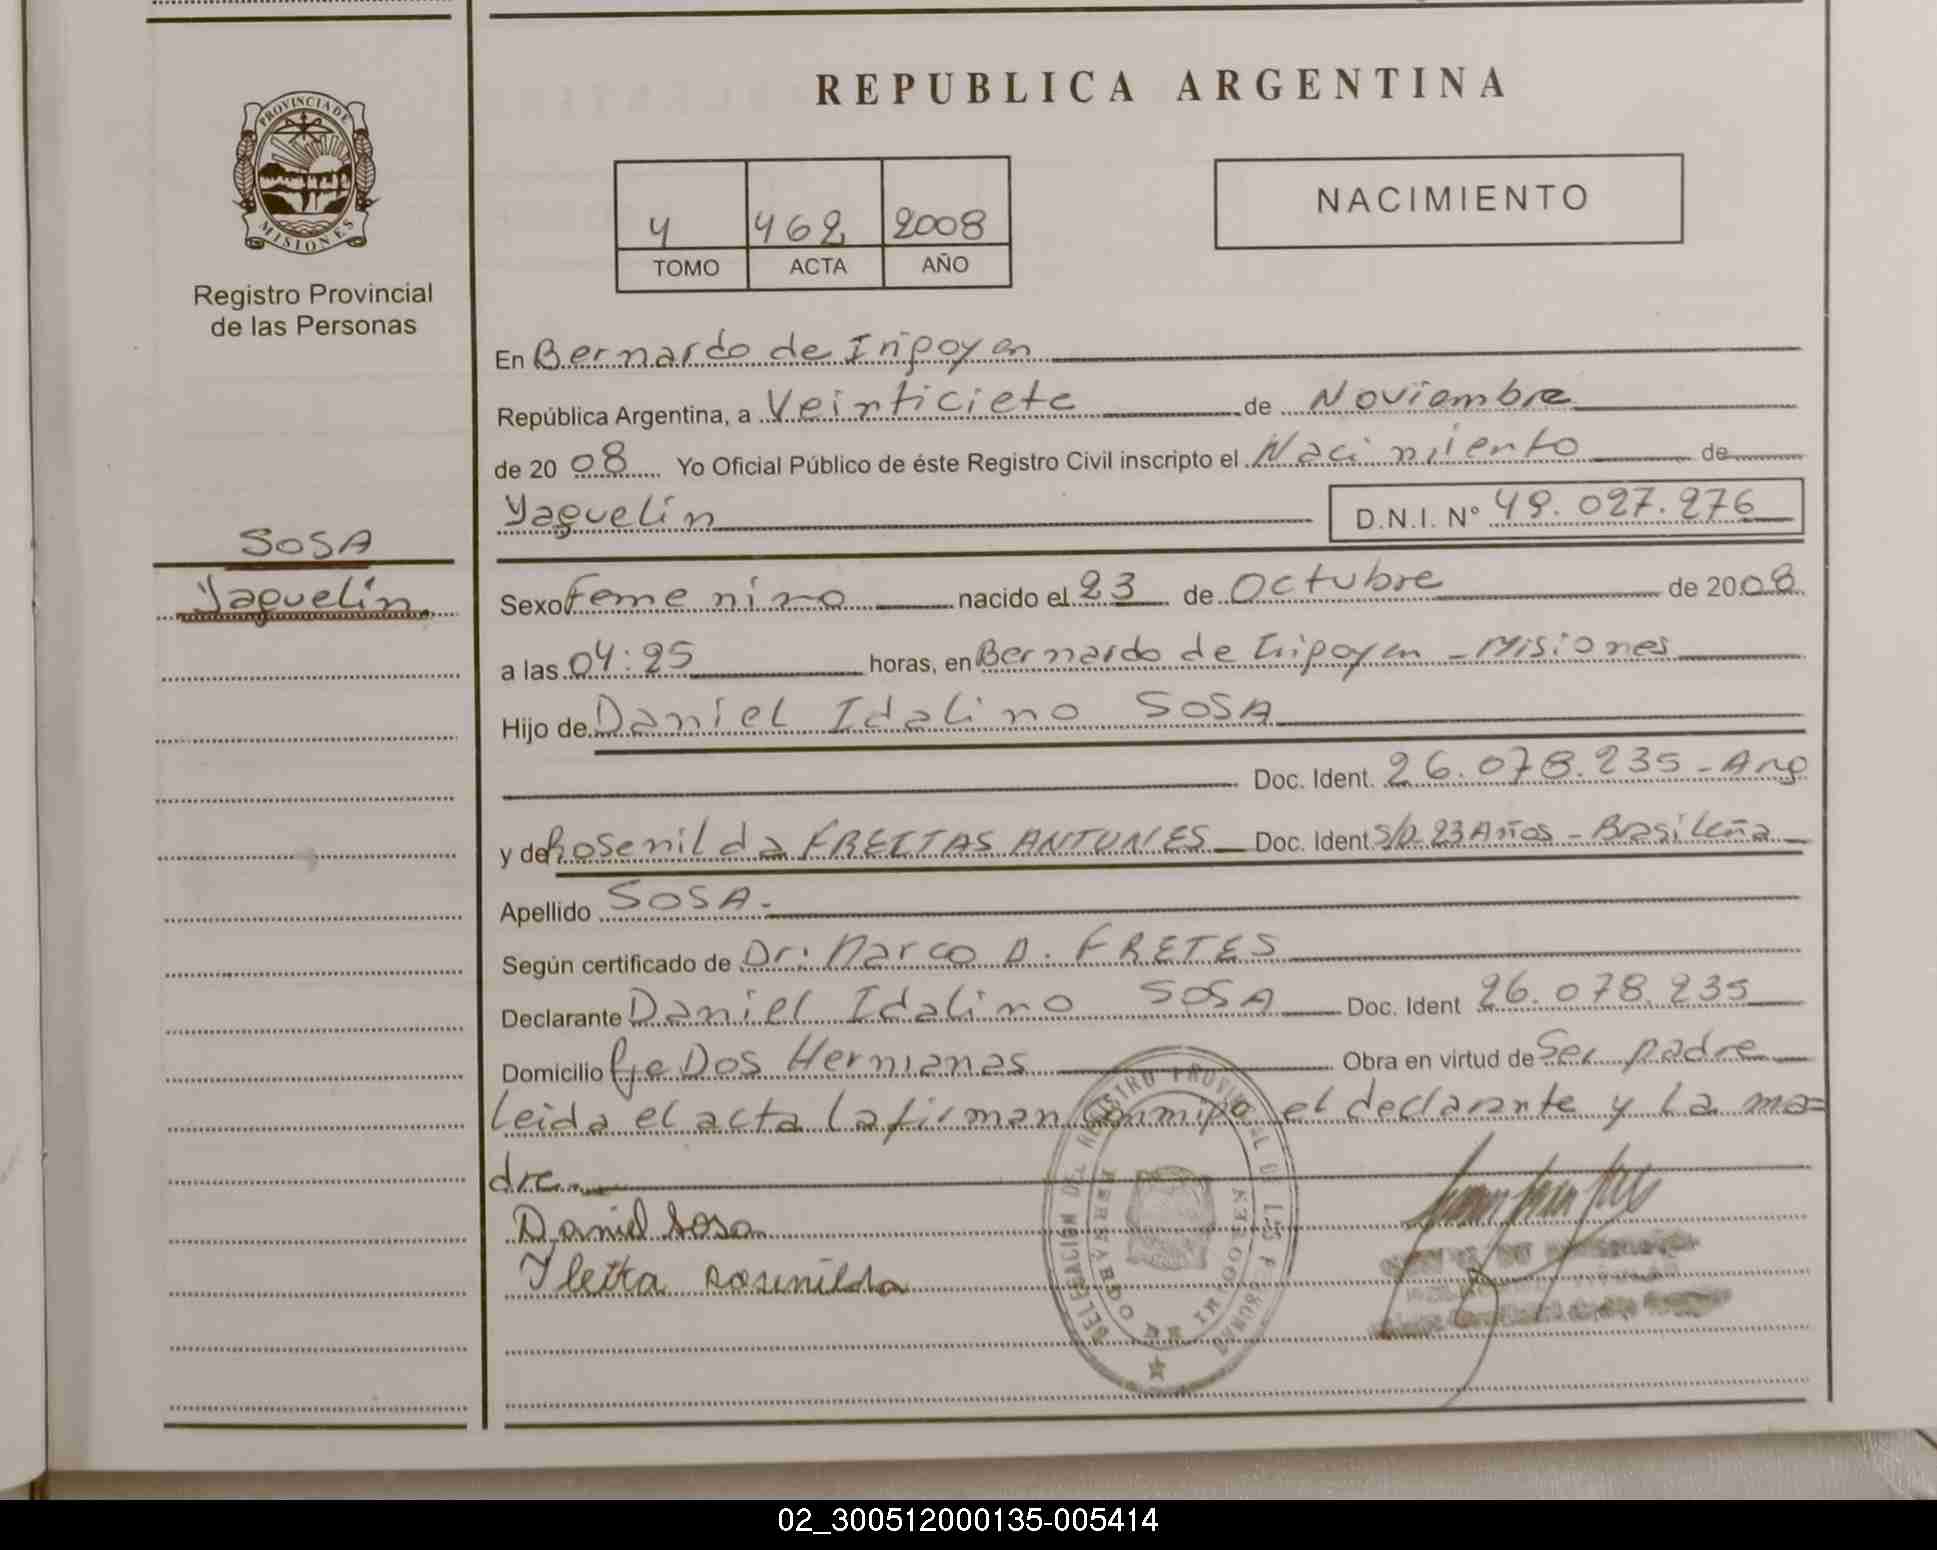 REPUBLICA ARGENTINA
PROVINCIA DE
MISIONES
Registro Provincial
de las Personas
4 462 2008
TOMO ACTA AÑO
NACIMIENTO
En Bernardo de Iripoyen
República Argentina, a Veinticiete de Noviembre
de 20 08 Yo Oficial Público de éste Registro Civil inscripto el Nacimiento de
Yaguelin D.N.I. N° 49.027.276
SOSA
Yaguelin
Sexo Femenino nacido el 23 de Octubre de 20 08
a las 04:25 horas, en Bernardo de Iripoyen - Misiones
Hijo de Daniel Idalino SOSA
Doc. Ident. 26.078.235 - Arg
y de Rosenilda FREITAS ANTUNES Doc. Ident S/D- 23 Años - Brasileña
Apellido SOSA.
Según certificado de Dr: Marco A. FRETES
Declarante Daniel Idalino SOSA Doc. Ident 26.078.235
Domicilio Pje Dos Hermanas Obra en virtud de Ser padre
Leida el acta la firman conmigo el declarante y la ma=
dre.
Daniel Sosa
Fleita rosenilda
DELEGACION DEL REGISTRO PROVINCIAL DE LAS PERSONAS
BERNARDO DE IRIGOYEN
02_300512000135-005414